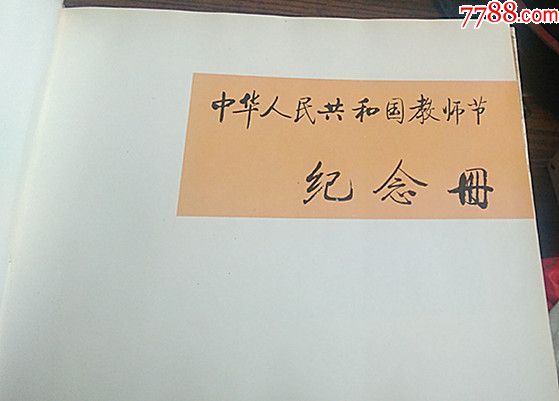 7788.com
中华人民共和国教师节
纪念册